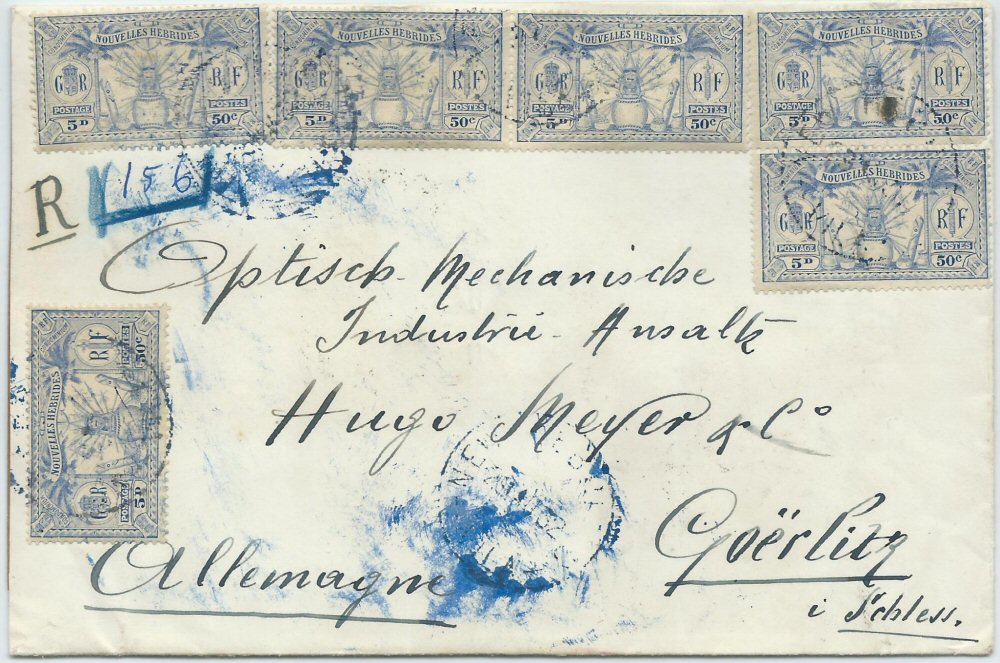 NOUVELLES HEBRIDES
G R
R F
POSTAGE
POSTES
5D
50c
NOUVELLES HEBRIDES
G R
R F
POSTAGE
POSTES
5D
50c
NOUVELLES HEBRIDES
G R
R F
POSTAGE
POSTES
5D
50c
NOUVELLES HEBRIDES
G R
R F
POSTAGE
POSTES
5D
50c
NOUVELLES HEBRIDES
G R
R F
POSTAGE
POSTES
5D
50c
R 156
Optisch-Mechanische
Industrie-Ansaltz
Hugo Meyer & Co
NOUVELLES HEBRIDES
G R
R F
POSTAGE
POSTES
5D
50c
Goërlitz
Allemagne
i Schless.